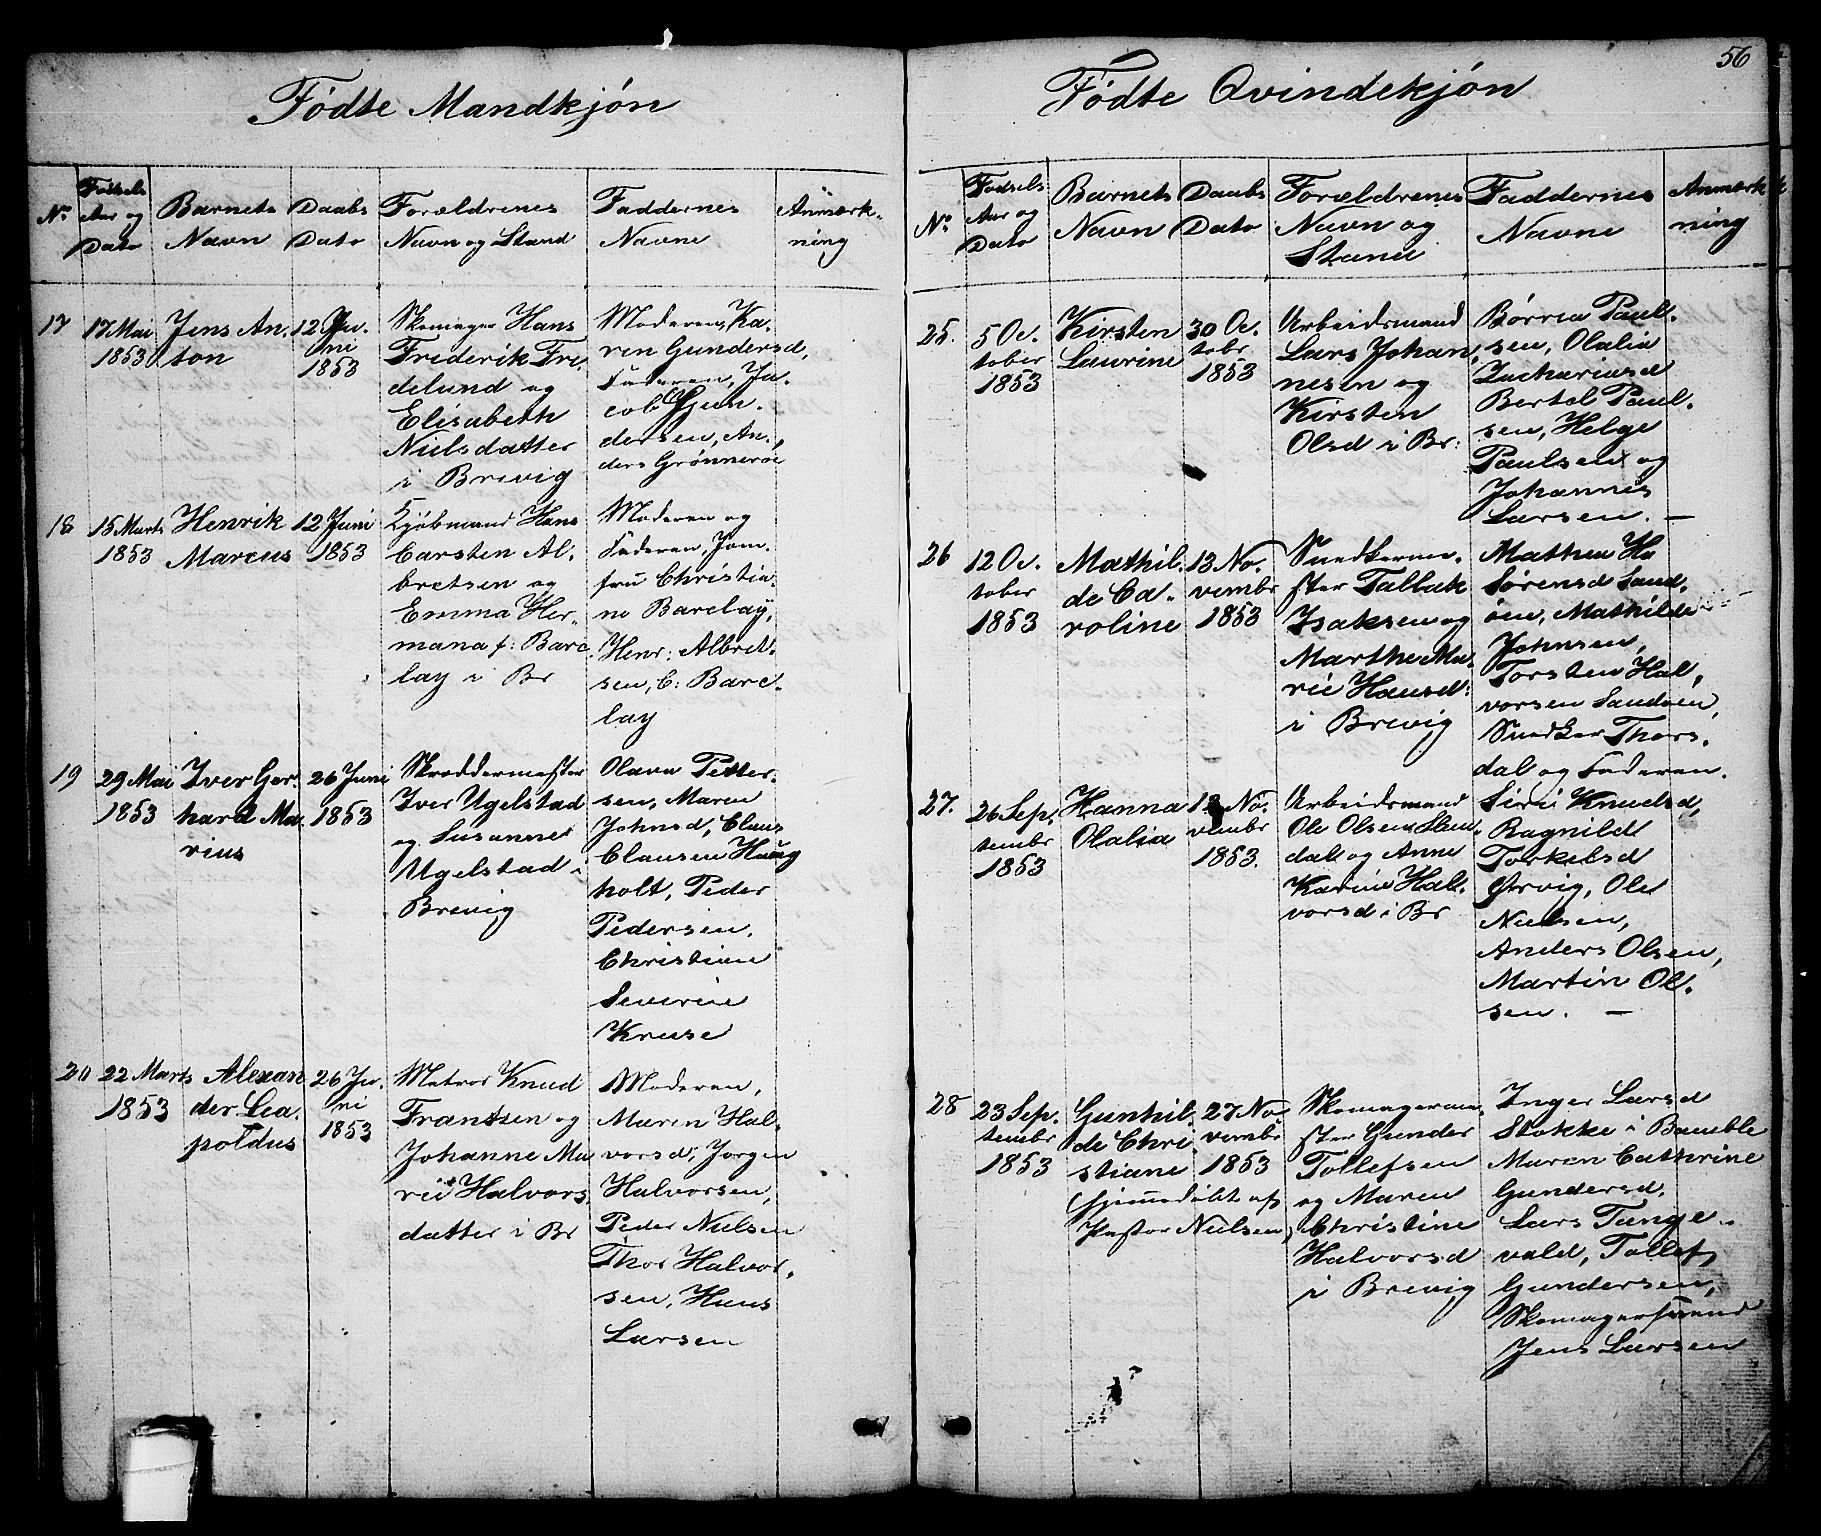 Fødte Mandkjøn
No
Fødsels
Aar og
Dato
Barnets
Navn
Daabs
Dato
Forældrenes
Navn og Stand
Faddernes
Navne
Anmærk-
ning
17
17 Mai
1853
Jens An-
ton
12 Ju-
ni
1853
Skomager Hans
Frederik Fri-
delund og
Elisabeth
Nielsdatter
i Brevig
Moderen, Ka-
ren Gundersd,
Faderen, Ja-
cob Gun-
dersen, An-
ders Grønnerøe
18
15 Marts
1853
Henrik
Marcus
12 Juni
1853
Kjøbmand Hans
Carsten Al-
bretsen og
Emma Her-
mana f: Barc-
lay i Br
Moderen og
Faderen, Jom-
fru Christia-
ne Barclay,
Henr: Albret-
sen, C: Barc-
lay
19
29 Mai
1853
Iver Ger-
hard Ma-
rius
26 Juni
1853
Skreddermester
Iver Ugelstad
og Susanne
Ugelstad i
Brevig
Olava Petter-
sen, Maren
Johnsd, Claus
Clausen Haug
holt, Peder
Pedersen,
Christiane
Severine
Kruse
20
22 Marts
1853
Alexan
der Lea-
poldus
26 Ju-
ni
1853
Matros Knud
Frantsen og
Johanne Ma
rie Halvors
datter i Br
Moderen,
Maren Hal-
vorsd, Jørgen
Halvorsen,
Peder Nielsen
Thor Halvor-
sen, Hans
Larsen
56
Fødte Qvindekjøn
No
Fødsels
Aar og
Dato
Barnets
Navn
Daabs
Dato
Forældrenes
Navn og
Stand
Faddernes
Navne
Anmærk
ning
25.
5 Oc-
tober
1853
Kirsten
Laurine
30 Oc-
tobr
1853
Arbeidsmand
Lars Johan-
nesen og
Kirsten
Olsd i Br:
Børrea Paul-
sen, Olalia
Zachariasd
Bertal Paul-
sen, Helge
Paulsen og
Johannes
Larsen. —
26
12 Oc-
tober
1853
Mathil-
de Ca-
roline
13 No-
vembr
1853
Snedkerme-
ster Tallak
Isaksen og
Marthe Ma-
rie Hansd:
i Brevig
Mathea Ha
Sørensd Sand-
øen, Mathilde
Johnsen,
Torsten Hal-
vorsen Sandøen,
Snedker Thors-
dal og Faderen.
27.
26 Sep-
tembr
1853
Hanna
Olalia
13 No-
vembr
1853.
Arbeidsmand
Ole Olsen Sten-
dal og Anne
Karine Hal-
vorsd i Br
Siri Knudsd,
Ragnild
Torkelsd
Ørvig, Ole
Nielsen,
Anders Olsen,
Martin Ol-
sen. —
28
23 Sep-
tembr
1853
Gunhil-
de Chri-
stiane
(hjemmedøbt af
Pastor Nielsen)
27 No-
vembr
1853
Skomagerme-
ster Gunder
Tollefsen
og Maren
Christine
Halvorsd
i Brevig
Inger Larsd
Stokke i Bamble
Maren Cathrine
Gundersd.
Lars Tange-
vald, Tollef
Gundersen,
Skomagersvend
Jens Larsen